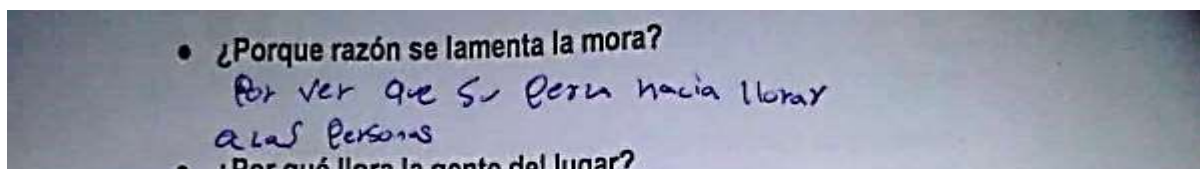 • ¿Porque razón se lamenta la mora?
Por ver que su pena hacia llorar
a las Personas
• ¿Por qué llora la gente del lugar?